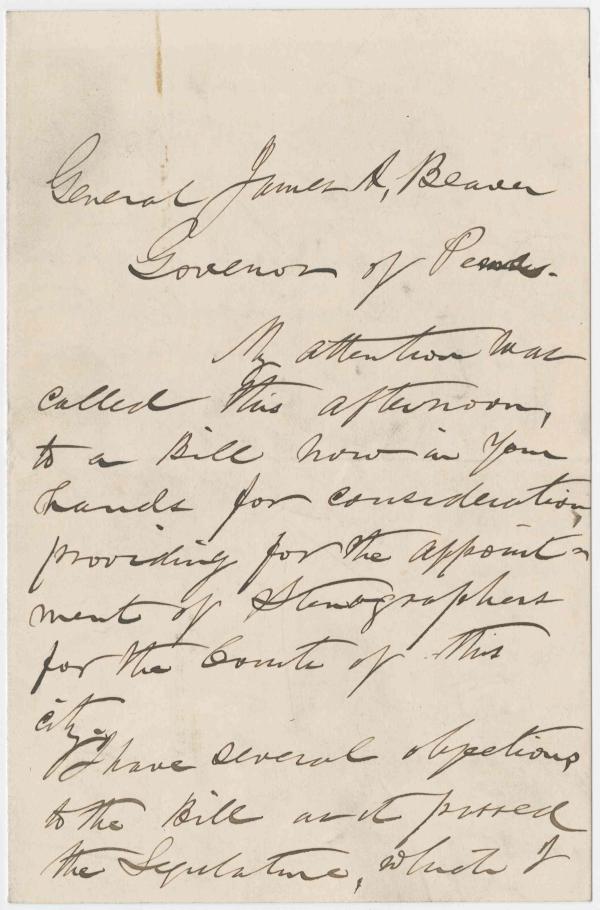 General James A, Beaver
Govenor of Penna.
My attention was
called this afternoon,
to a Bill now in your
hands for consideration,
providing for the appoint=
ment of Stenographers
for the Courts of this
city.
I have several objections
to the Bill as it passed
the Legislature, which if